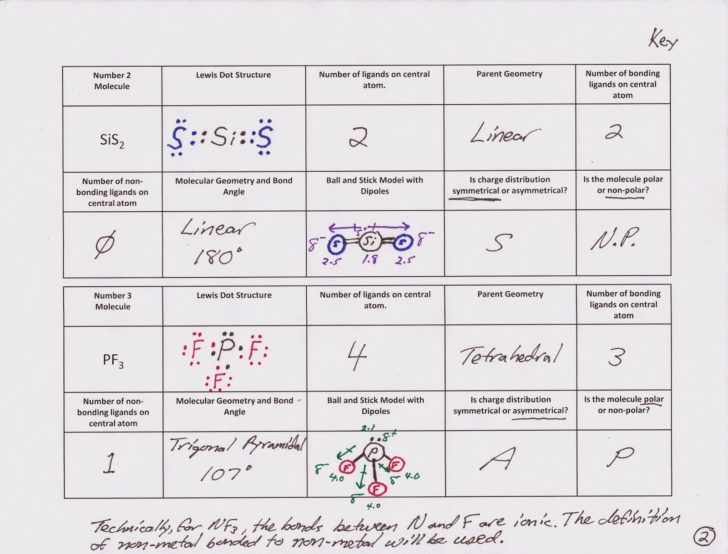 Key
Number 2 Molecule Lewis Dot Structure Number of ligands on central atom. Parent Geometry Number of bonding ligands on central atom
SiS2 S::Si::S 2 Linear 2
Number of non-bonding ligands on central atom Molecular Geometry and Bond Angle Ball and Stick Model with Dipoles Is charge distribution symmetrical or asymmetrical? Is the molecule polar or non-polar?
Ø Linear 180° δ- S Si S δ- 2.5 1.8 2.5 S N.P.
Number 3 Molecule Lewis Dot Structure Number of ligands on central atom. Parent Geometry Number of bonding ligands on central atom
PF3 :F:P:F: :F: 4 Tetrahedral 3
Number of non-bonding ligands on central atom Molecular Geometry and Bond Angle Ball and Stick Model with Dipoles Is charge distribution symmetrical or asymmetrical? Is the molecule polar or non-polar?
1 Trigonal Pyramidal 107° 2.1 δ+ P F F F δ- 4.0 δ- 4.0 δ- 4.0 A P
Technically, for NF3, the bonds between N and F are ionic. The definition
of non-metal bonded to non-metal will be used. 2